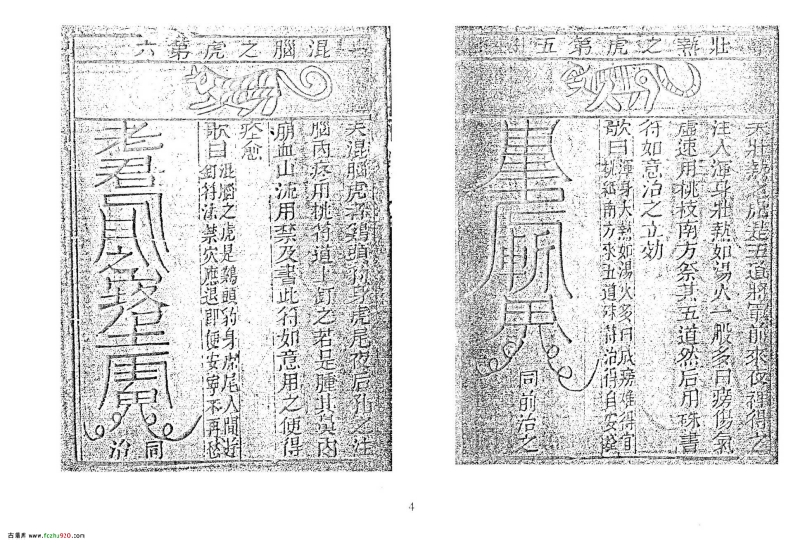 壮热之虎第五
夫壮热之虎是五道將軍前來夜裡得之
注人渾身壮熱如湯火一般多日癆傷氣
虛速用桃枝南方祭其五道然后用硃書
符如意治之立効
歌曰
渾身大熱如湯火多日成癆难得宜
桃紙南方來五道硃符治得自安
同前治之
混腦之虎第六
夫混腦虎者鷄頭豹身虎尾夜后
腦內疼用桃符道十釘之若是腫其眞肉
崩血山流用禁及書此符如意用之便得
痊愈
歌曰
混腦之虎是鷄頭豹身虎尾人間遊
釘符法禁灾應退即便安寧不再愁
老君
同治
4
古籍库 www.fczhu920.com